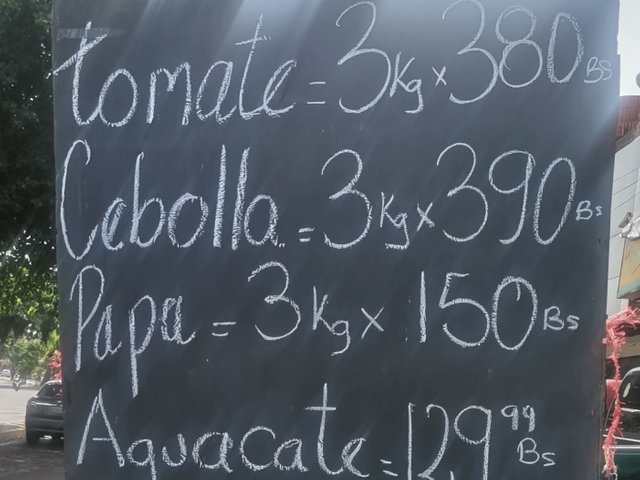 tomate = 3Kg x 380 Bs
Cebolla = 3Kg x 390 Bs
Papa = 3Kg x 150 Bs
Aguacate = 129,99 Bs